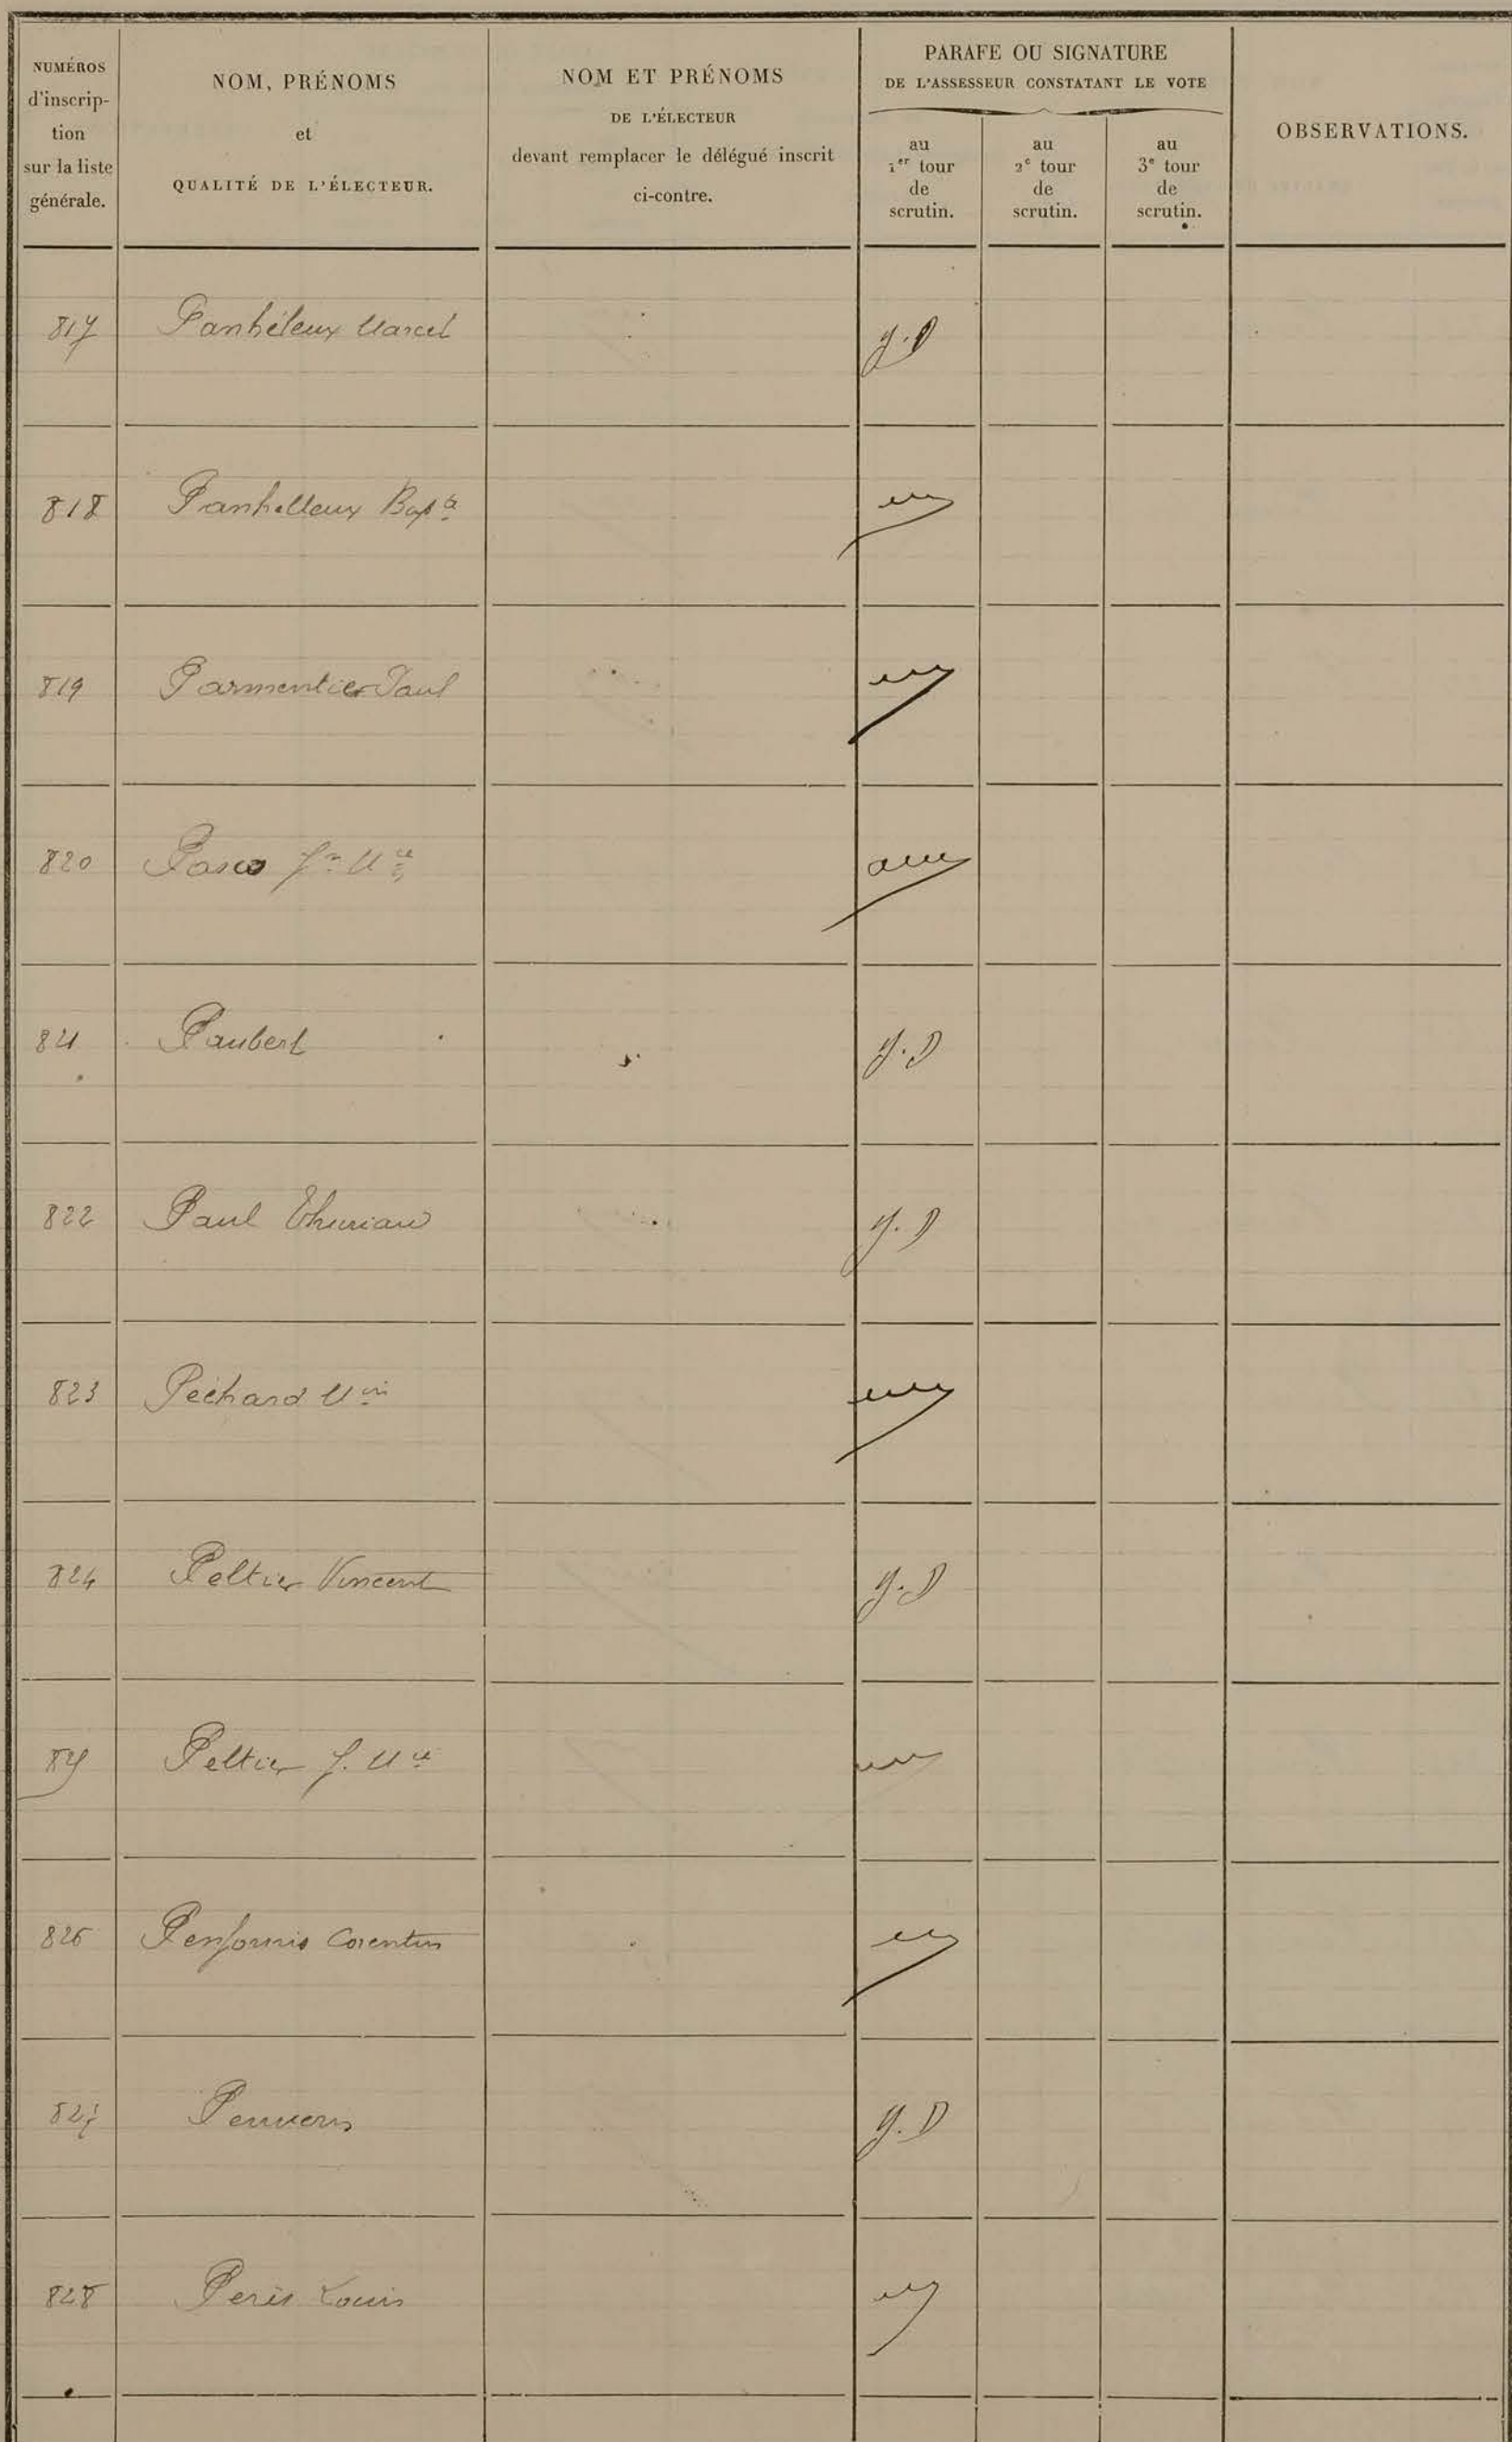 NUMÉROS
d'inscrip-
tion
sur la liste
générale.
NOM, PRÉNOMS
et
QUALITÉ DE L'ÉLECTEUR.
NOM ET PRÉNOMS
DE L'ÉLECTEUR
devant remplacer le délégué inscrit
ci-contre.
PARAFE OU SIGNATURE
DE L'ASSESSEUR CONSTATANT LE VOTE
au
1er tour
de
scrutin.
au
2e tour
de
scrutin.
au
3e tour
de
scrutin.
OBSERVATIONS.
817 Panhéleux Marcel
818 Panhelleux Bapte
819 Parmentier Paul
820 Pasco
821 Paubert
822 Paul Thuriau
823 Péchard
824 Peltier Vincent
825 Peltier J. Mie
826 Penfornis Corentin
827 Penvern
828 Peris Louis